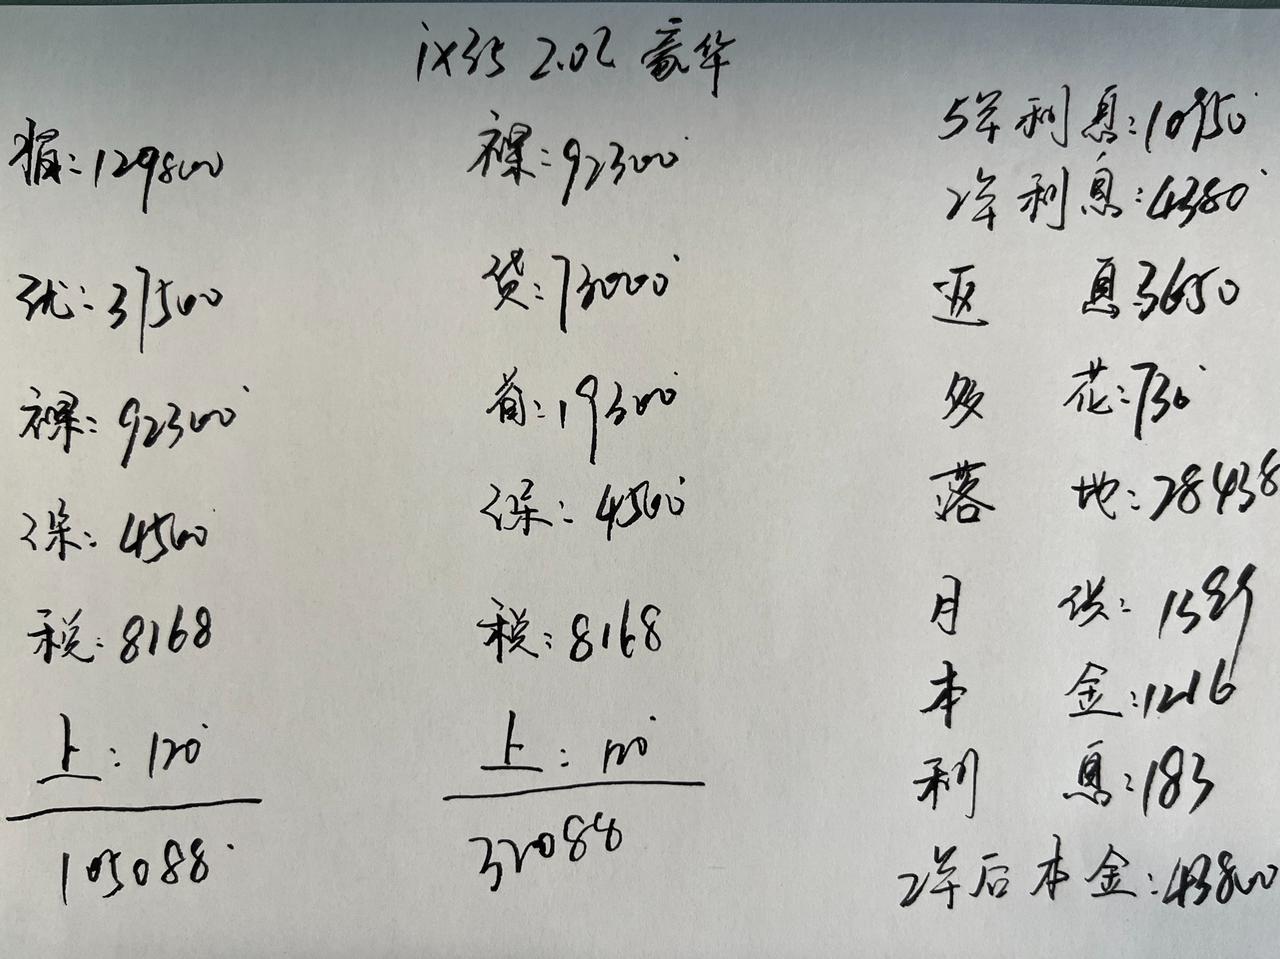 ix35 2.0L 豪华
指: 129800
优: 37500
裸: 92300
保: 4500
税: 8168
上: 120
105088
裸: 92300
贷: 73000
首: 19300
保: 4500
税: 8168
上: 120
32088
5年利息: 10950
2年利息: 4380
返 息: 3650
多 花: 730
落 地: 28438
月 供: 1399
本 金: 1216
利 息: 183
2年后本金: 43800